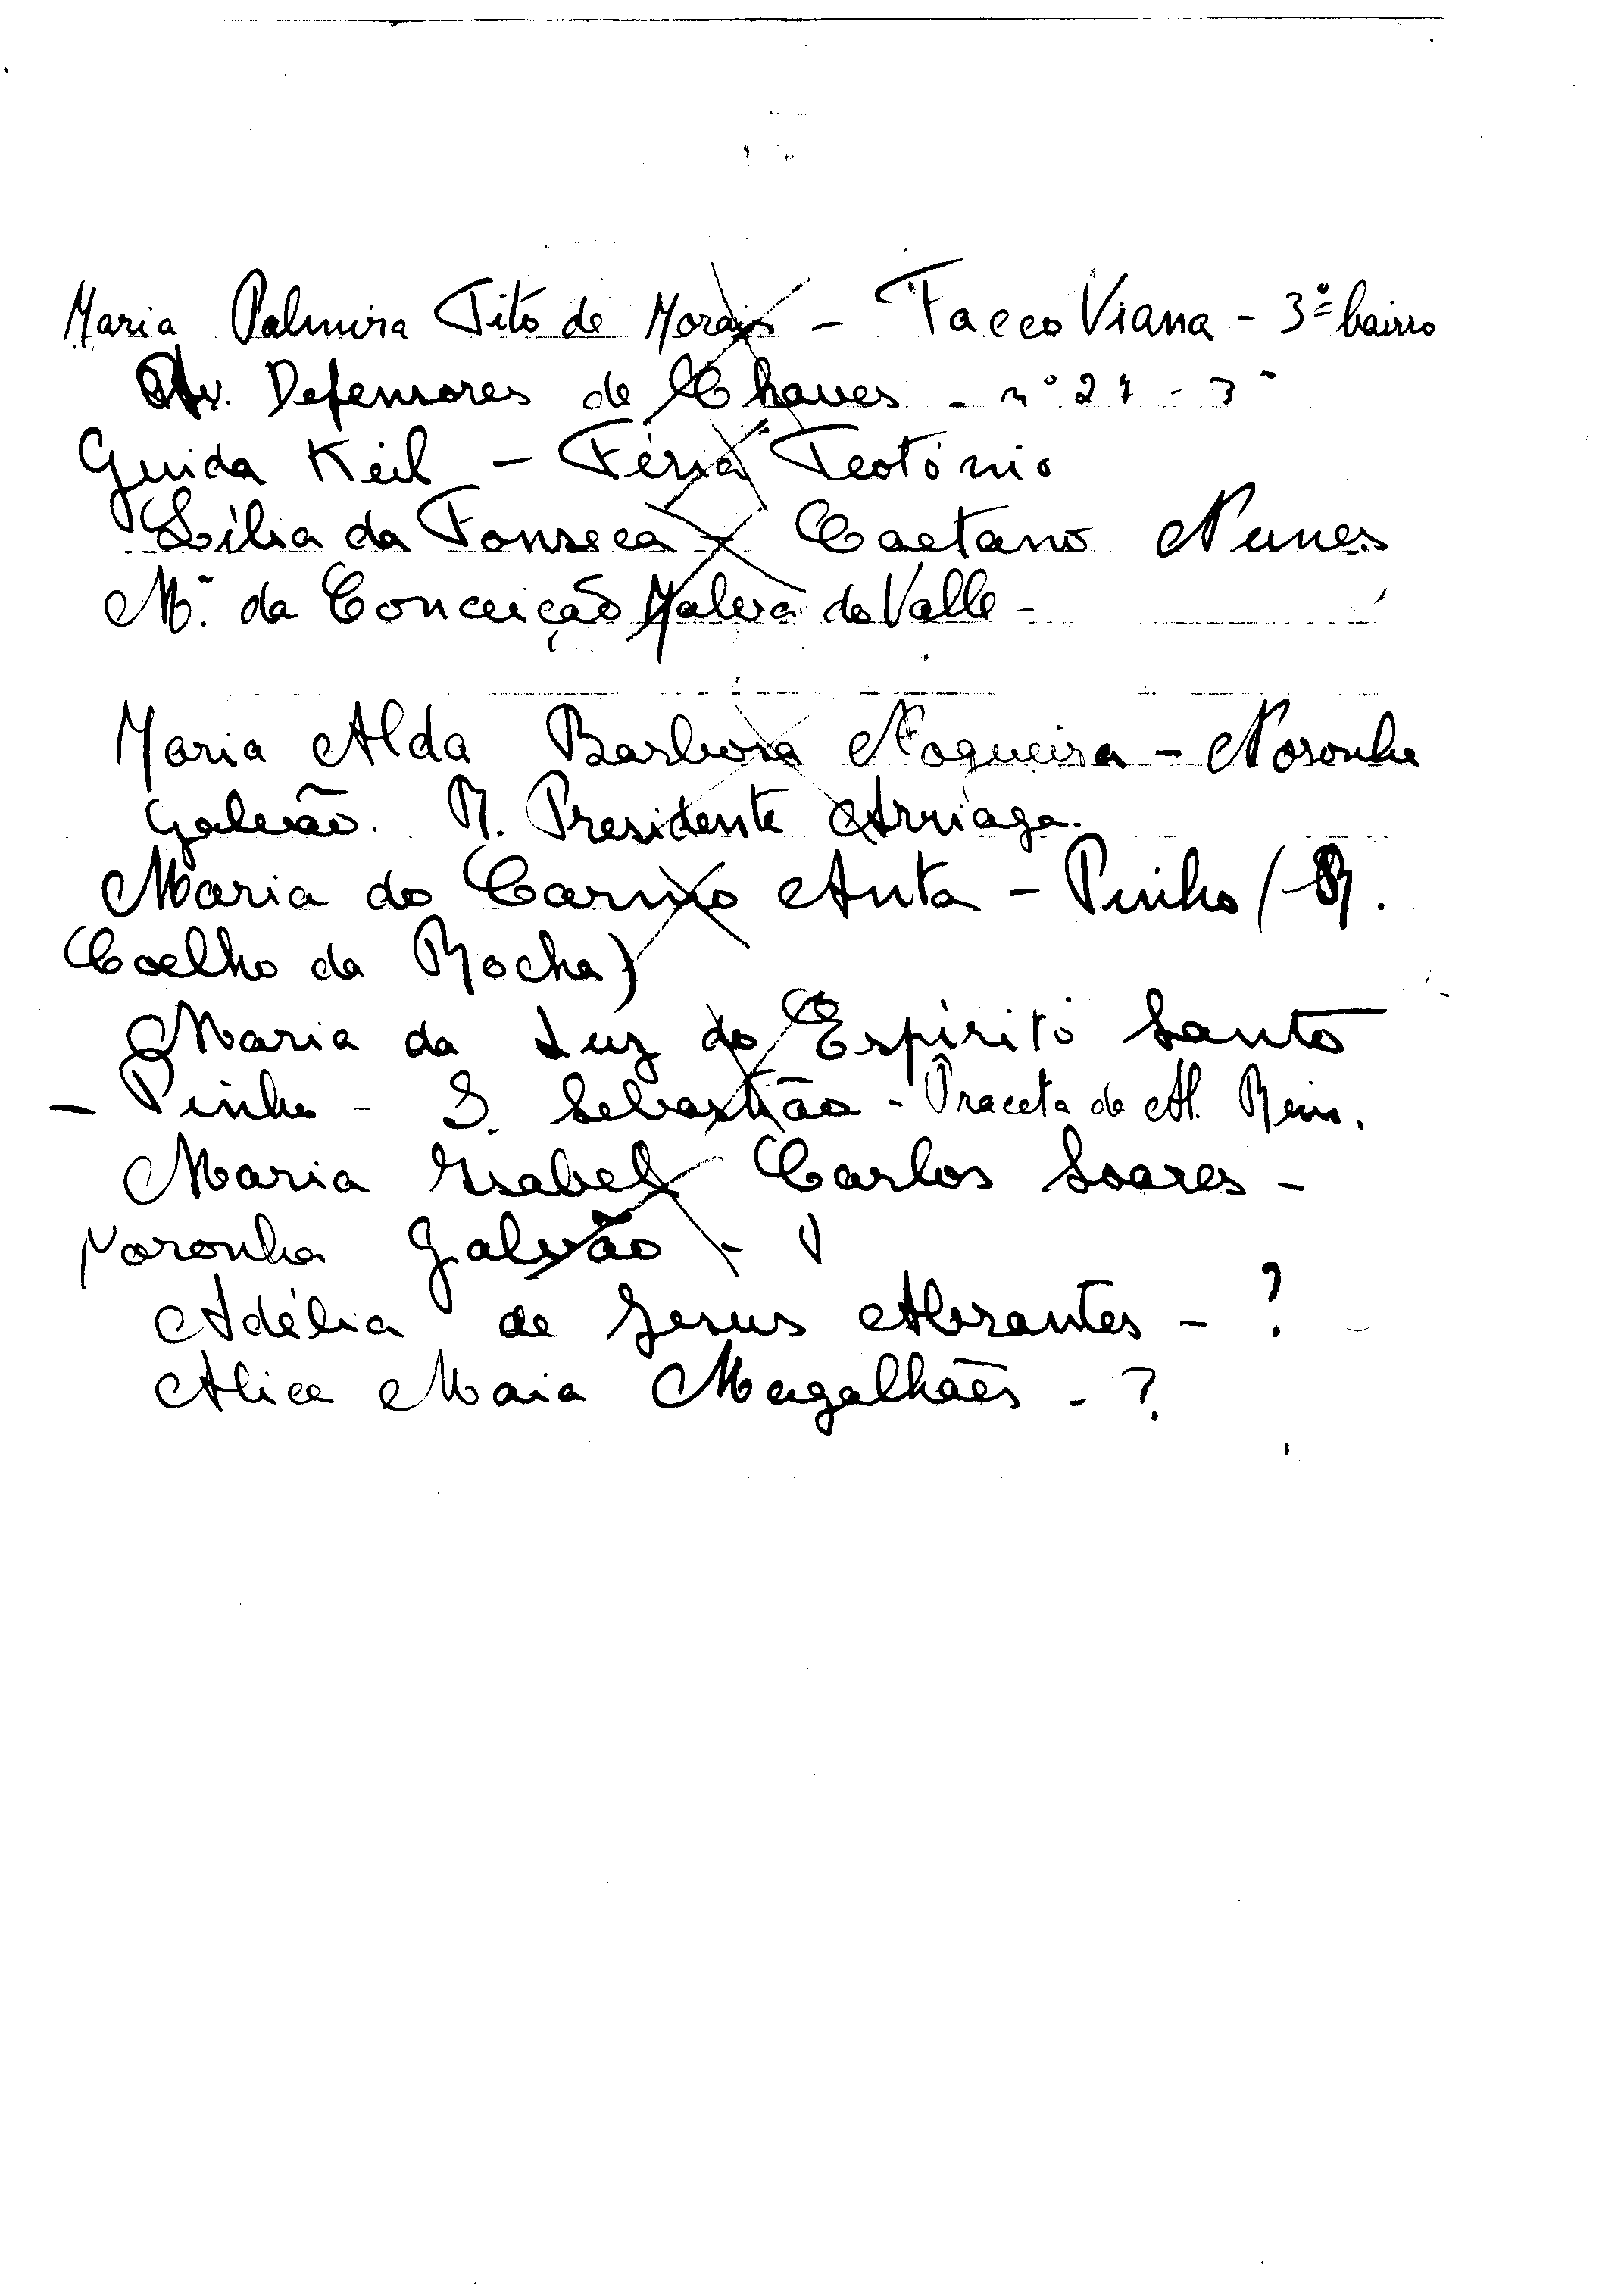 Maria Palmira Tito de Morais - Facco Viana - 3º bairro
Av. Defensores de Chaves - nº 27 - 3º
Guida Keil - Féria Teotónio
Lília da Fonseca - Caetano Nunes
Mª da Conceição do Valle -
Maria Alda Barbosa Nogueira - Noronha
Galvão. R. Presidente Arriaga.
Maria do Carmo Anta - Pinho (R.
Coelho da Rocha)
Maria da Luz do Espírito Santo
- Pinho - S. Sebastião - Praceta do Al.
Maria Isabel Carlos Soares -
Noronha Galvão -
Adélia de Jesus Abrantes - ?
Alice Maia Magalhães - ?